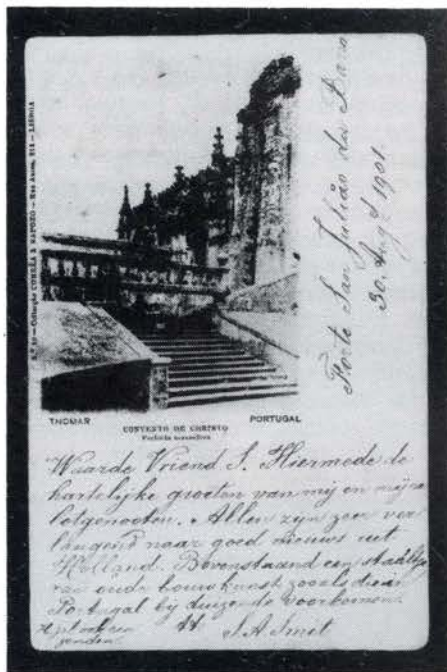 Nº 10 - Collecção CORRÊA & RAPOZO - Rua Aurea, 214 - LISBOA
Forte San Julião da Barra
30. Augt 1901.
THOMAR
PORTUGAL
CONVENTO DE CHRISTO
Waarde Vriend S. Hiermede de
hartelijke groeten van mij en mijne
lotgenooten. Allen zijn zeer ver
langend naar goed nieuws uit
Holland. Bovenstaand een staaltje
van oude bouwkunst zooals die in
Portugal bij duizende voorkomen.
tt S.A. Smit
zenden